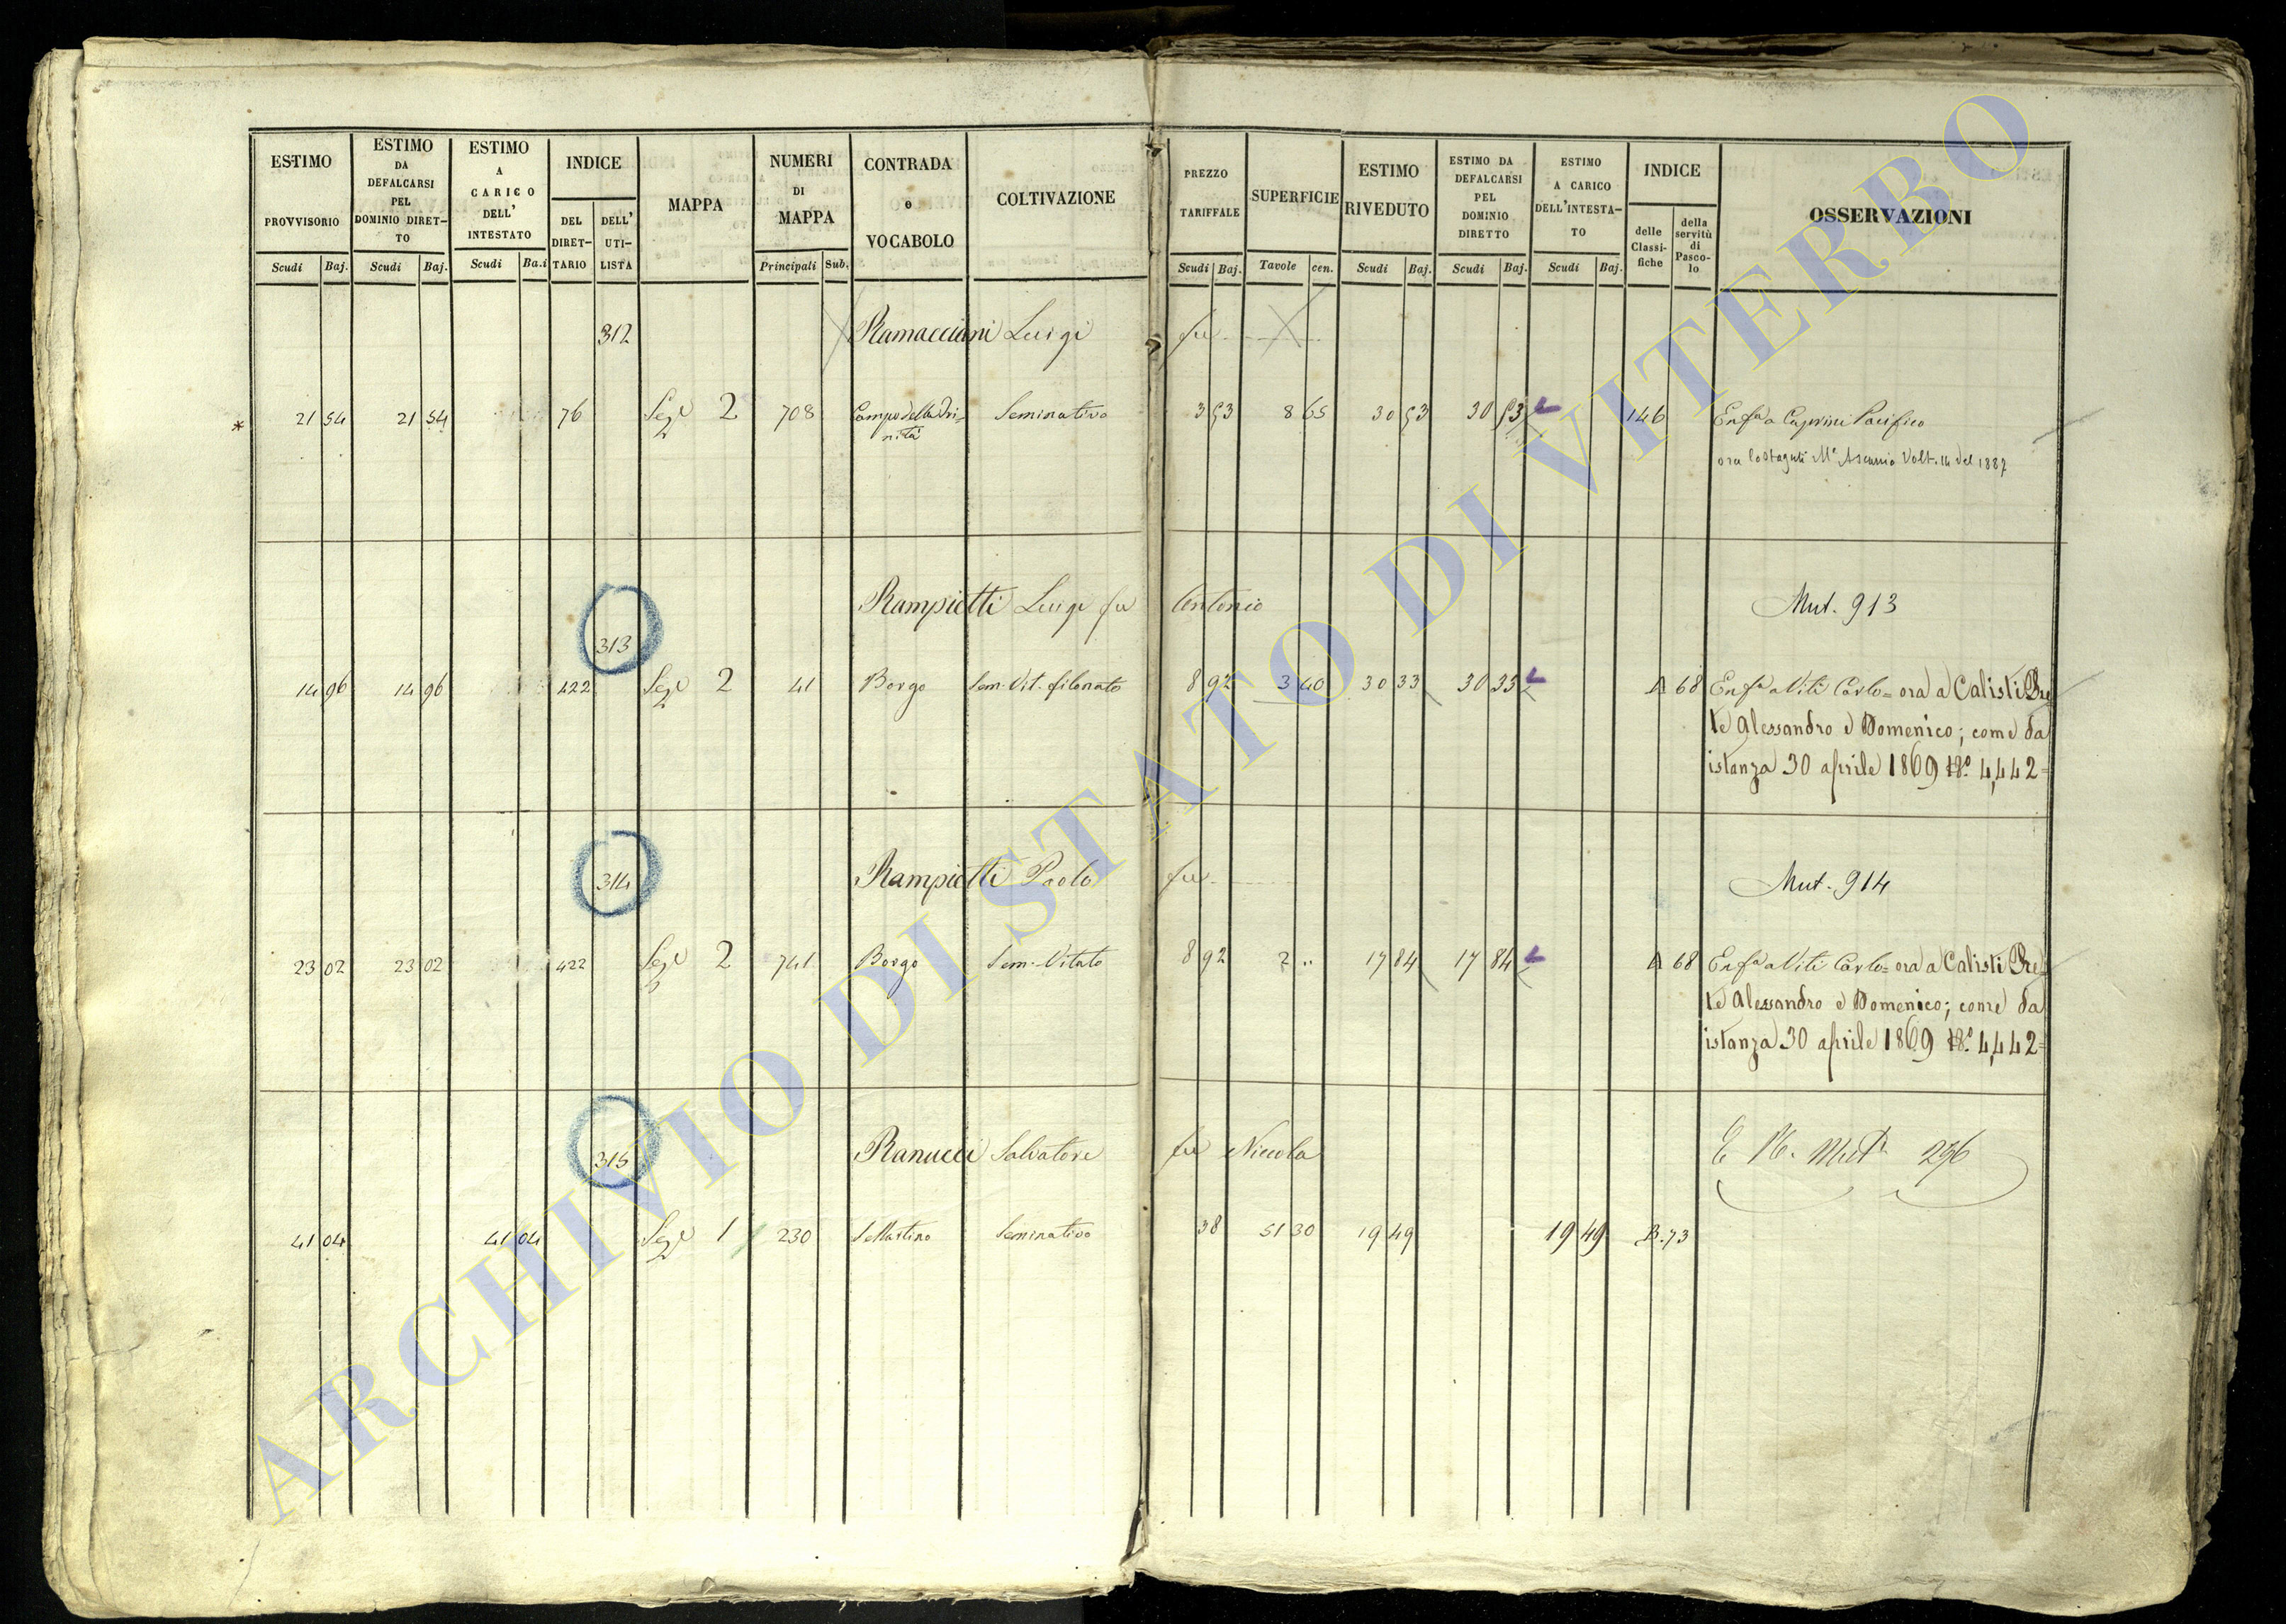 ESTIMO PROVVISORIO
ESTIMO DA DEFALCARSI PEL DOMINIO DIRET-TO
ESTIMO A CARICO DELL' INTESTATO
INDICE
DEL DIRET-TARIO
DELL' UTI-LISTA
MAPPA
NUMERI DI MAPPA
CONTRADA e VOCABOLO
COLTIVAZIONE
PREZZO TARIFFALE
SUPERFICIE
ESTIMO RIVEDUTO
ESTIMO DA DEFALCARSI PEL DOMINIO DIRETTO
ESTIMO A CARICO DELL'INTESTA-TO
INDICE
delle Classi-fiche
della servitù di Pasco-lo
OSSERVAZIONI
Scudi Baj. Scudi Baj. Scudi Ba.i Principali Sub. Scudi Baj. Tavole cen. Scudi Baj. Scudi Baj. Scudi Baj.
312 Ramacciani Luigi fu
* 21 54 21 54 76 Sez. 2 708 Campo della Tri- Seminativo 3 53 8 65 30 53 30 53 146 Enfa a Caprini Pacifico
nità
ora Costaguti Me Ascanio Volt. 14 del 1887
Rampietti Luigi fu Antonio Mut. 913
313
14 96 14 96 422 Sez. 2 41 Borgo Sem. Vit. filonato 8 92 3 40 30 33 30 33 A 68 Enfa a Viti Carlo = ora a Calisti Pre
te Alessandro e Domenico; come da
istanza 30 aprile 1869 No. 4,442=
314 Rampietti Paolo fu Mut. 914
23 02 23 02 422 Sez. 2 741 Borgo Sem. Vitato 8 92 2 .. 17 84 17 84 A 68 Enfa a Viti Carlo = ora a Calisti Pre
te Alessandro e Domenico; come da
istanza 30 aprile 1869 No. 4,442=
315 Ranucci Salvatore fu Niccola Mut. 296
41 04 41 04 Sez. 1 230 S. Martino Seminativo 38 51 30 19 49 19 49 B. 73
ARCHIVIO DI STATO DI VITERBO